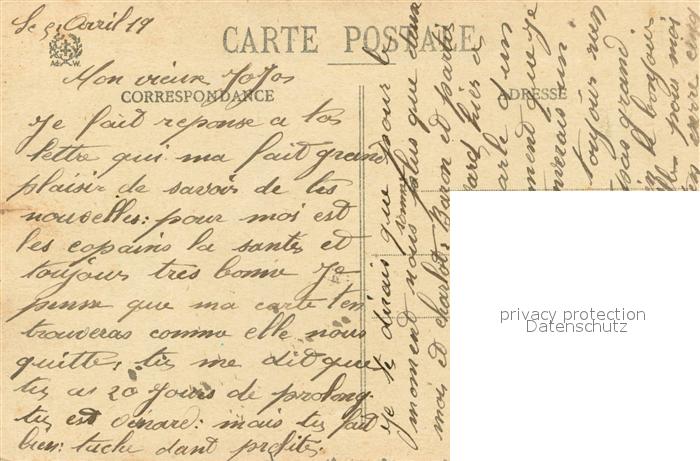 Le 5 Avril 19
CARTE POSTALE
Ad. W.
Mon vieux Jojos
CORRESPONDANCE
ADRESSE
Je fait reponse a tas
lettre qui ma fait grand
plaisir de savoir de tes
nouvelles: pour moi est
les copains la santés et
toujours tres bonne Je
pense que ma carte t'en
trouveras comme elle nous
quitte, tu me dit que
tu as 20 jours de prolong.
tu est vénard: mais tu fait
bien: tache dant profités.
Je te dirais que pour le
moment nous sommes plus que deux
moi et charlot: Baron et partie
hier a
toujour rien
pas grand
le bonjour
pour moi
privacy protection
Datenschutz